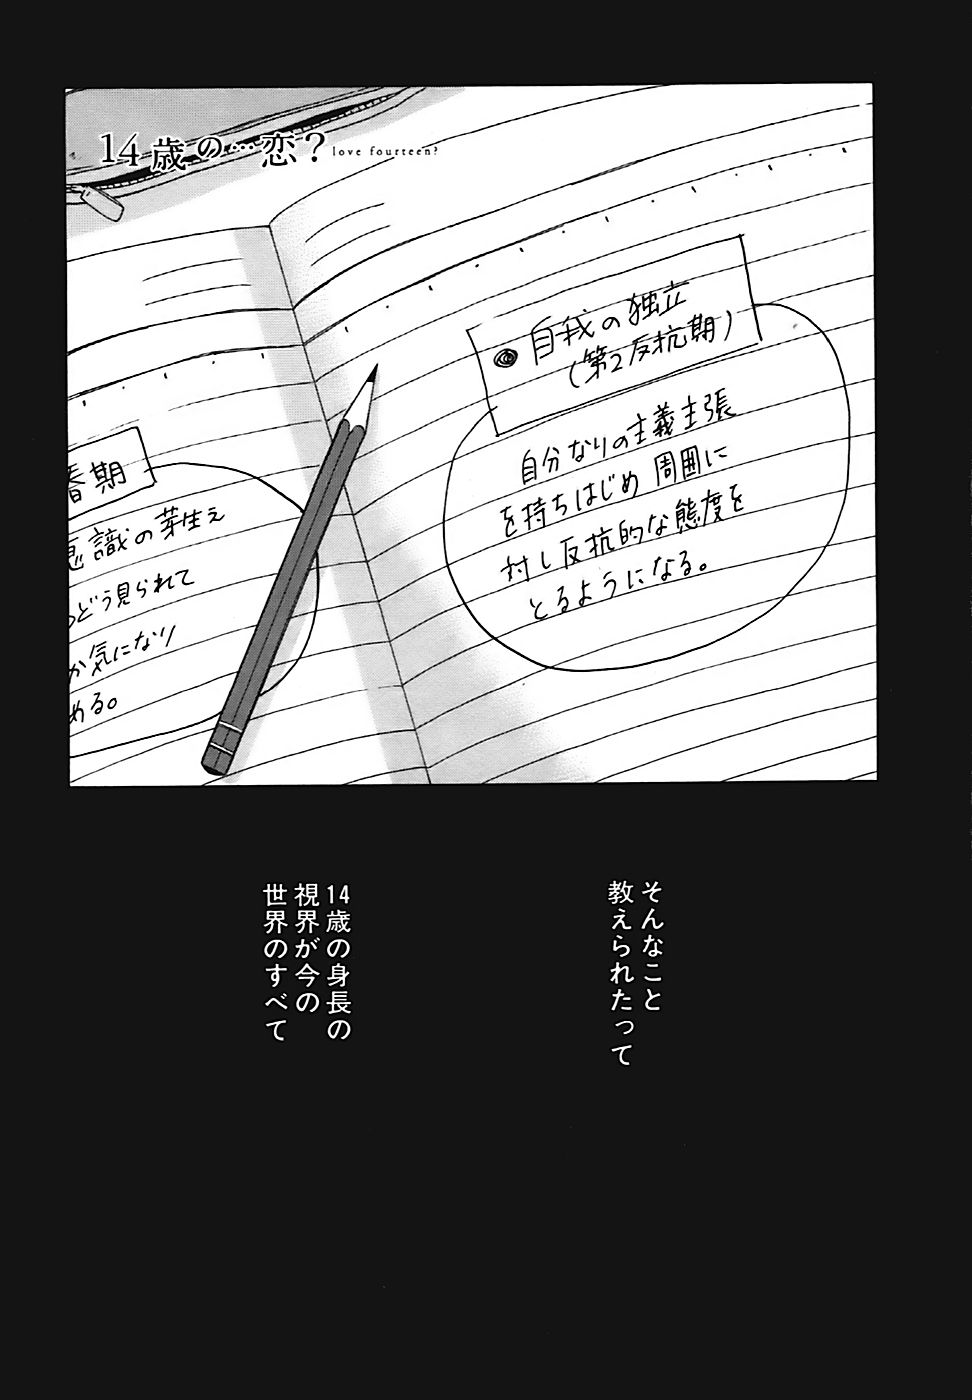 14歳の…恋？
love fourteen?
自我の独立
(第2反抗期)
自分なりの主義主張
を持ちはじめ周囲に
対し反抗的な態度を
とるようになる。
春期
意識の芽生え
どう見られて
か気になり
める。
そんなこと
教えられたって
14歳の身長の
視界が今の
世界のすべて